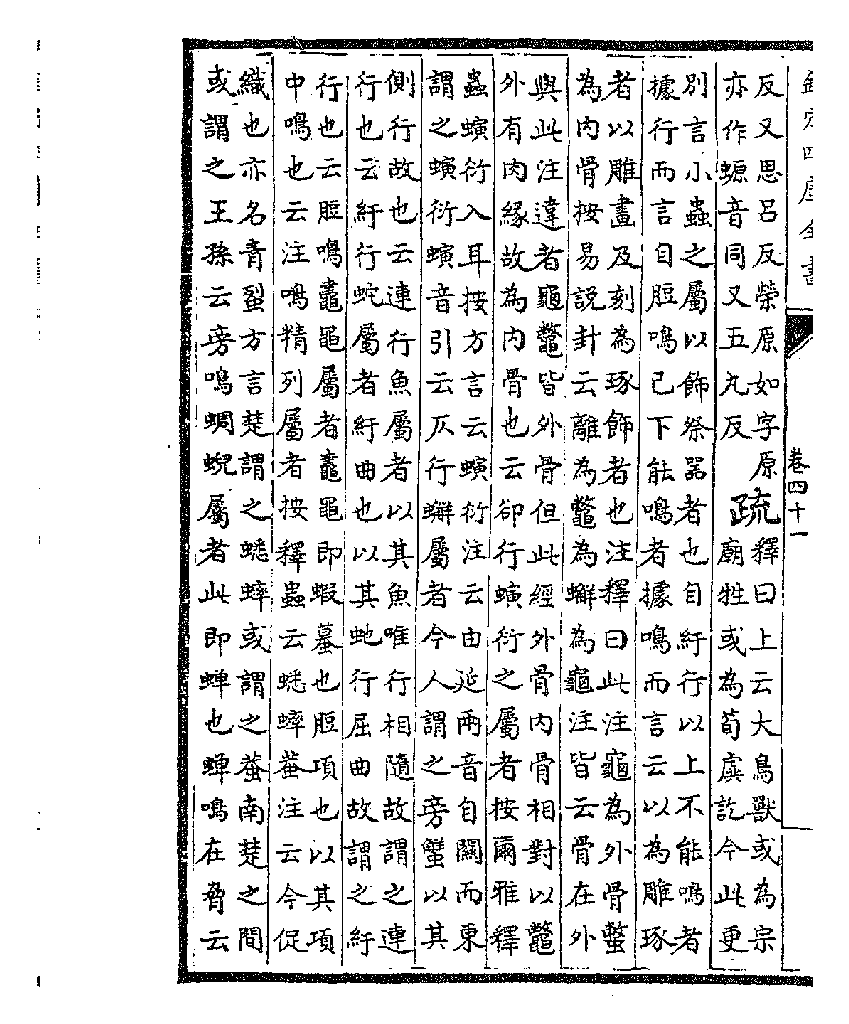 欽定四庫全書
卷四十一
反又思呂反榮原如字原
亦作螈音同又五丸反
疏
釋曰上云大鳥獸或為宗
廟牲或為筍虡訖今此更
別言小蟲之屬以飾祭器者也自紆行以上不能鳴者
據行而言自脰鳴已下能鳴者據鳴而言云以為雕琢
者以雕畫及刻為琢飾者也注釋曰此注龜為外骨鱉
為内骨按易說封云離為鼈為蠏為龜注皆云骨在外
與此注違者龜鼈皆外骨但此經外骨内骨相對以鼈
外有肉緣故為内骨也云卻行螾衍之屬者按爾雅釋
蟲螾衍入耳按方言云螾衍注云由延兩音自關而東
謂之螾衍螾音引云仄行蠏屬者今人謂之旁蟹以其
側行故也云連行魚屬者以其魚唯行相隨故謂之連
行也云紆行蛇屬者紆曲也以其虵行屈曲故謂之紆
行也云脰鳴鼃黽屬者鼃黽即蝦蟇也脰項也以其項
中鳴也云注鳴精列屬者按釋蟲云蟋蟀蛬注云今促
織也亦名青方言楚謂之蟋蟀或謂之蛬南楚之間
或謂之王孫云旁鳴蜩蜺屬者此即蟬也蟬鳴在脅云